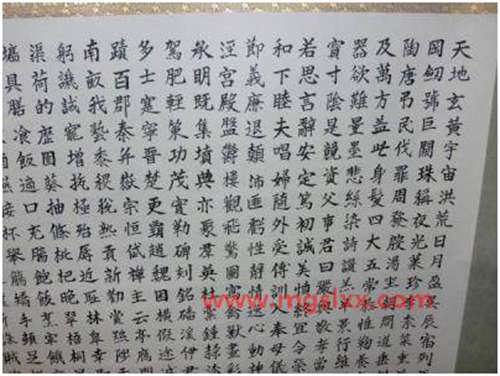 天地玄黃宇宙洪荒日月盈昃辰宿列
岡劒號巨闕珠稱夜光菓珍李柰菜重
陶唐弔民伐罪周發殷湯坐朝問道垂
及萬方蓋此身髮四大五常恭惟鞠養
器欲難量墨悲絲染詩讚羔羊景行維
寶寸陰是競資父事君曰嚴與敬孝當
若思言辭安定篤初誠美慎終宜令榮
和下睦夫唱婦隨外受傅訓入奉母儀
節義廉退顛沛匪虧性靜情逸心動神
涇宮殿盤鬱樓觀飛驚圖寫禽獸畫彩
承明既集墳典亦聚羣英杜稾鍾隸漆
駕肥輕策功茂實勒碑刻銘磻溪伊尹
多士寔寧晉楚更霸趙魏困橫假途
蹟百郡秦并嶽宗恒岱禪主云亭
南畝我藝黍稷稅熟貢新勸賞黜陟
躬譏誡寵增抗極殆辱近恥林皋幸
渠荷的歷園莽抽條枇杷晚翠梧桐
墻具膳飡飯適口充腸飽飫烹宰
www.mgslxx.com